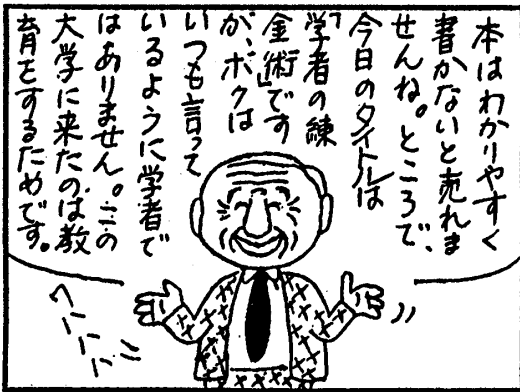 本はわかりやすく
書かないと売れま
せんね。ところで、
今日のタイトルは
「学者の練
金術」です
が、ボクは
いつも言って
いるように学者で
はありません。この
大学に来たのは教
育をするためです。
へへへへ